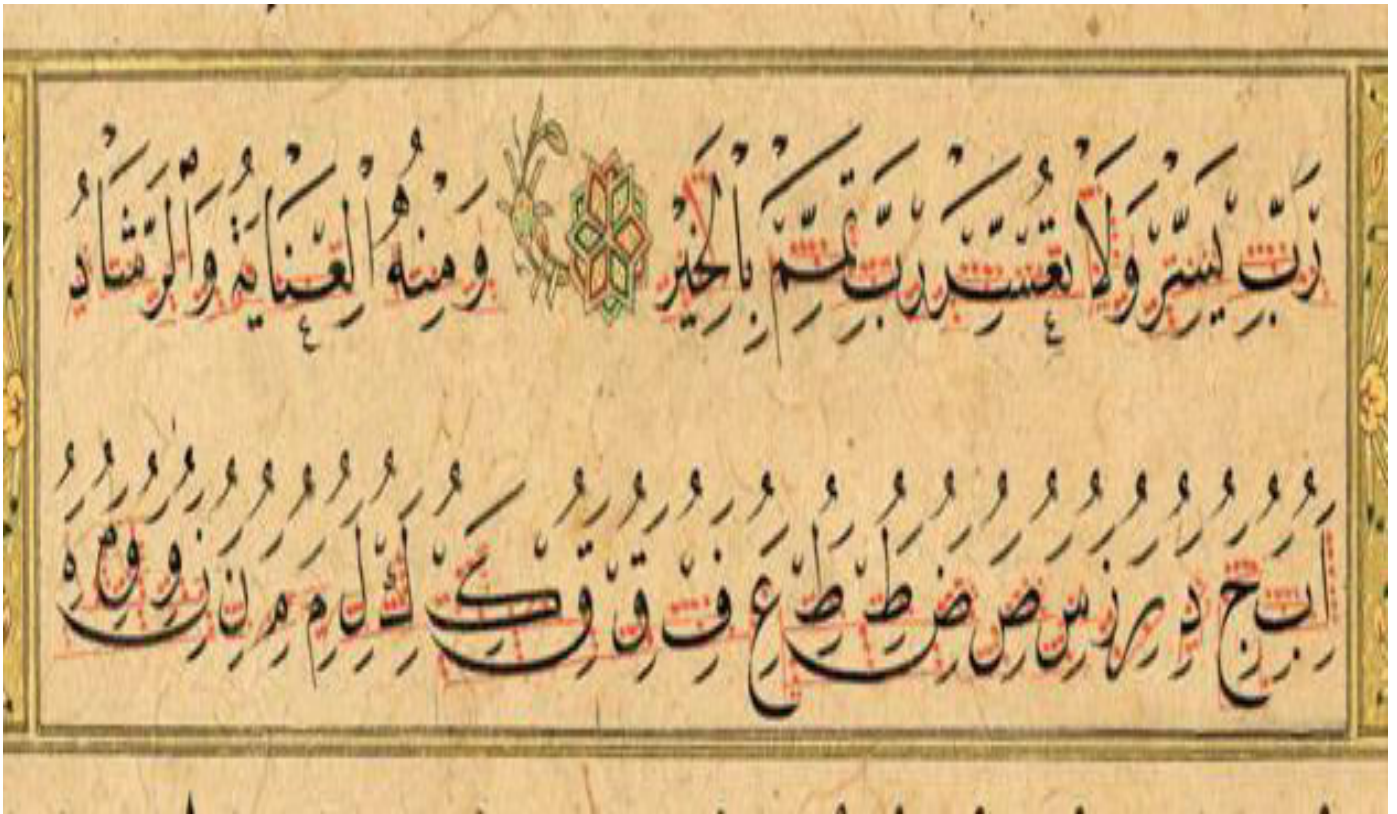 رَبِّ يَسِّرْ وَلَا تُعَسِّرْ رَبِّ تَمِّمْ بِالْخَيْرِ وَمِنْهُ الْعِنَايَةُ وَالرَّشَادُ
ا ب ج د ر ز س ص ض ط ط ع ف ق ق ك ك ل م م ن ن و و م ه